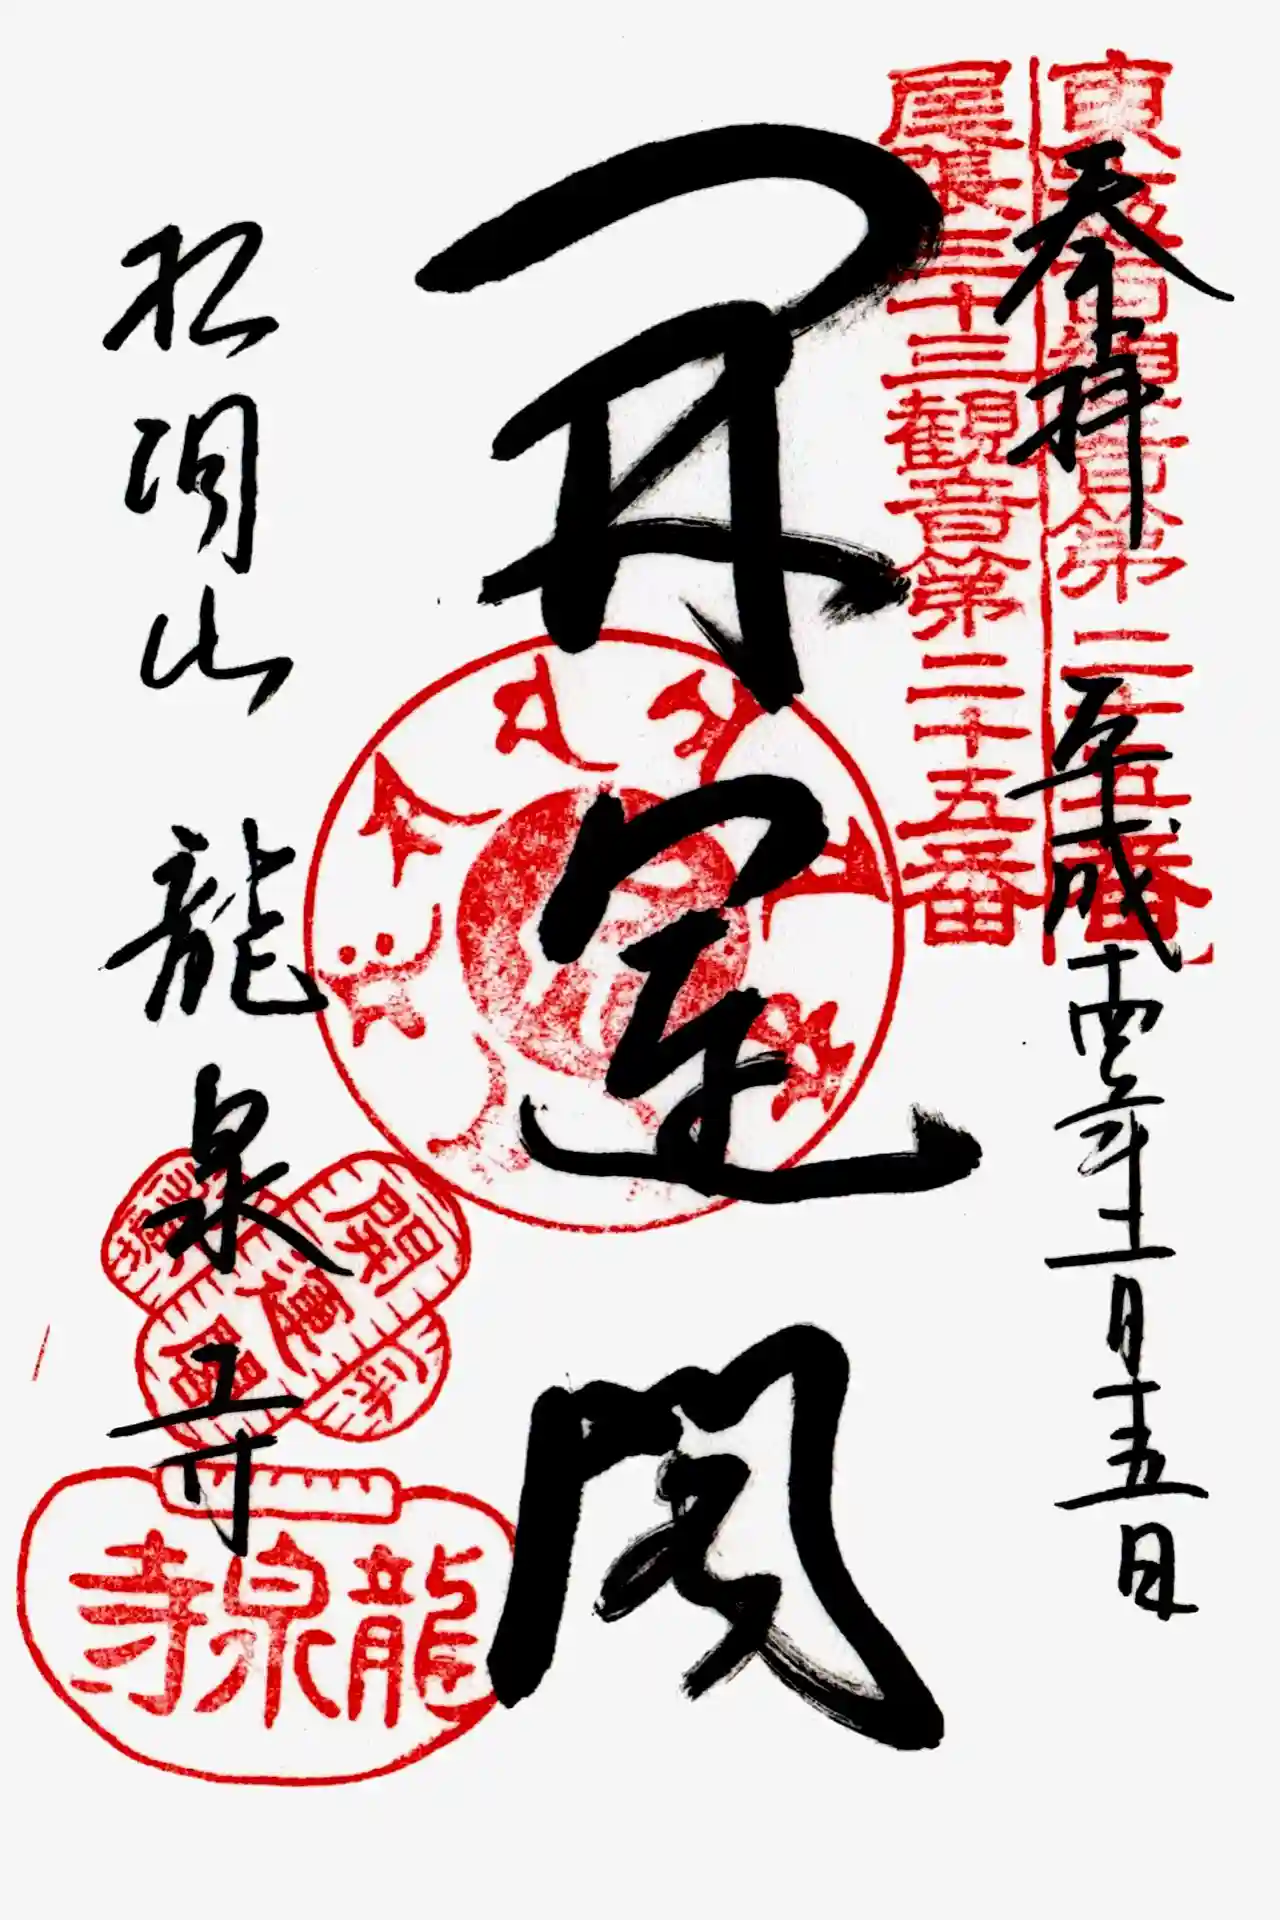 東海百観音第二十五番
尾張三十三観音第二十五番
奉拝 平成廿四年十一月十五日
開運閣
松洞山 龍泉寺
開運
龍泉寺